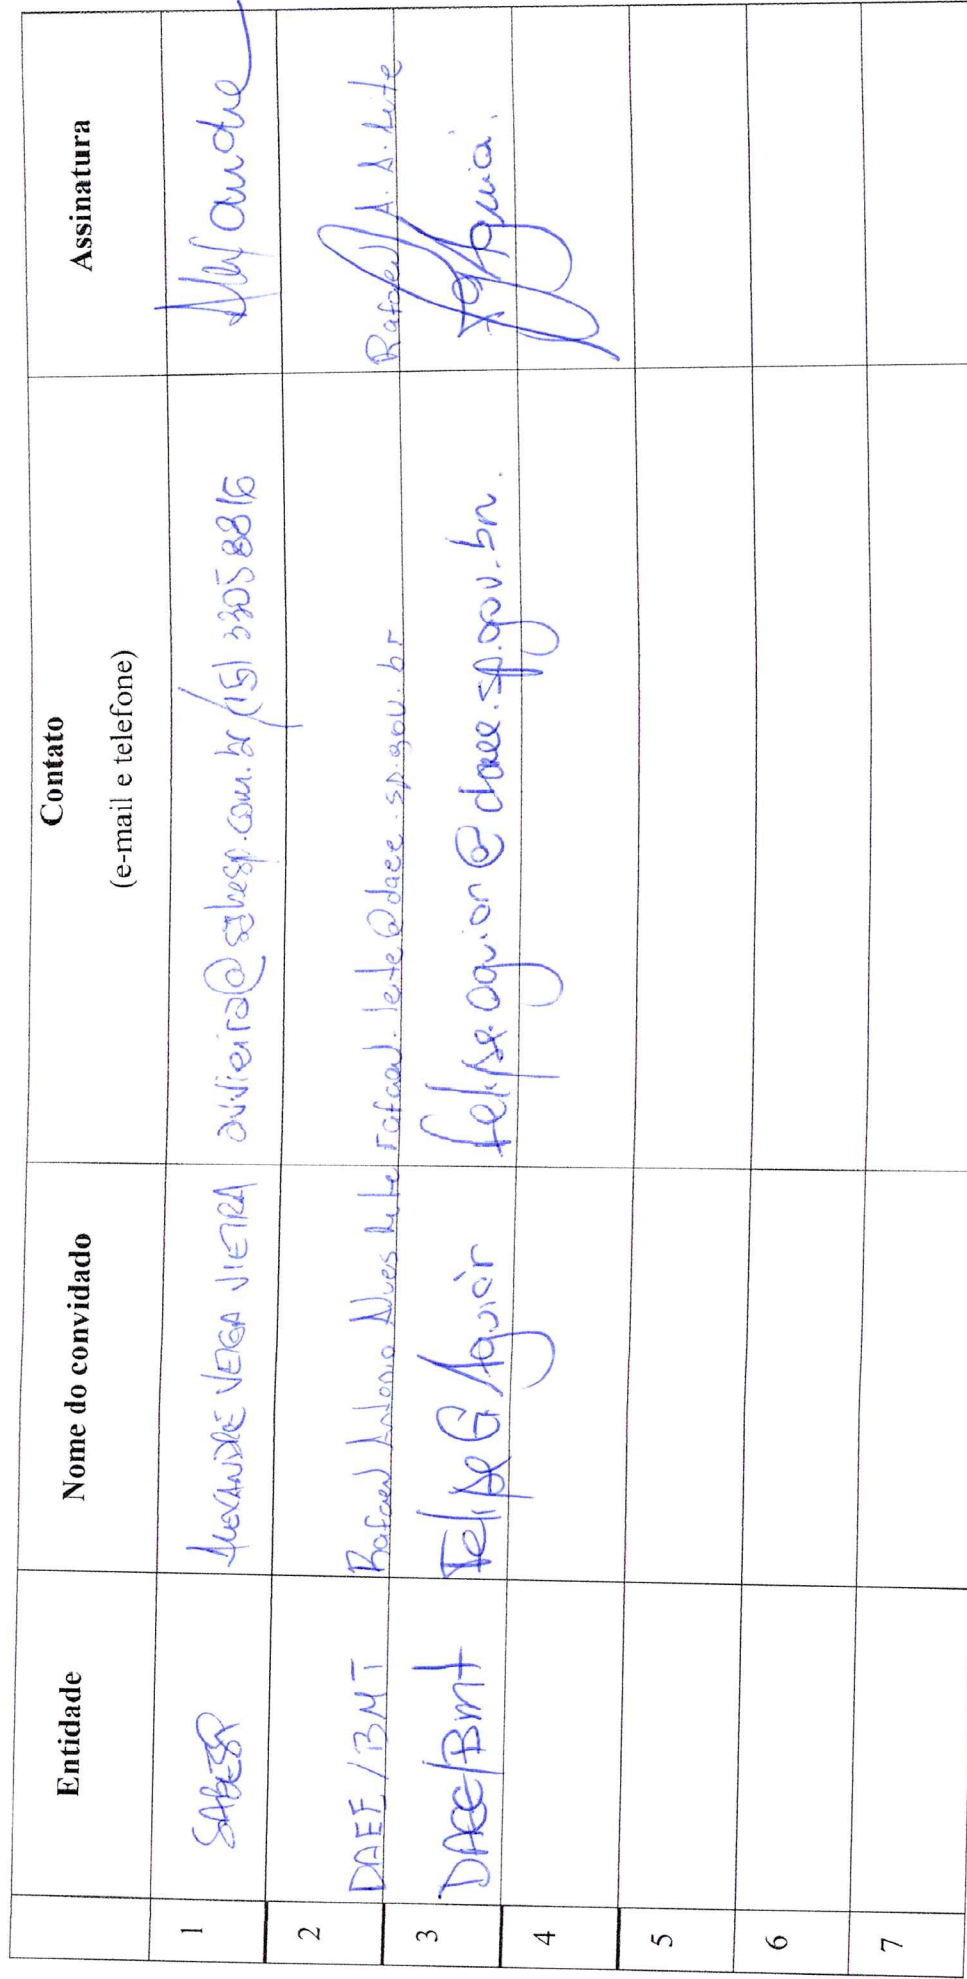 Entidade Nome do convidado Contato Assinatura
(e-mail e telefone)
1 SABESP ALEXANDRE VEIGA VIEIRA avvieira@sabesp.com.br/(15) 32058816 Alexandre
2 DAEE/BMT Rafael Antonio Alves Leite rafael.leite@daee.sp.gov.br Rafael A. A. Leite
3 DAEE/Bmt Felipe G. Aguiar felipe.aguiar@daee.sp.gov.br. Aguiar
4
5
6
7